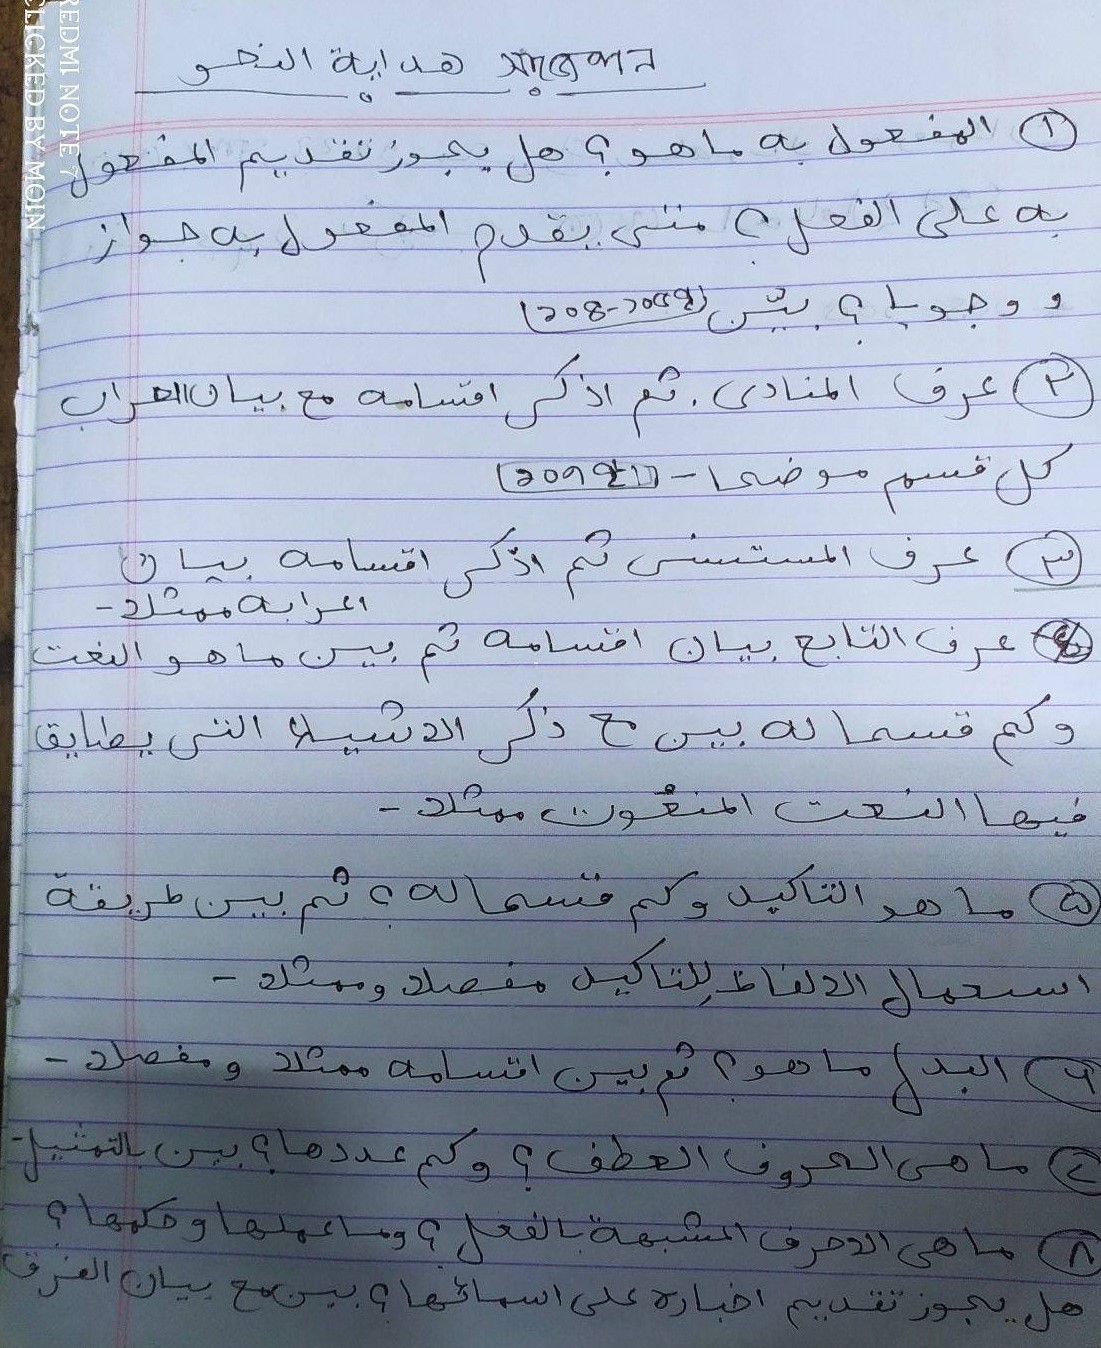 هداية النحو সাজেশন
١ المفعول به ما هو؟ هل يجوز تقديم المفعول
به على الفعل؟ متى يقدم المفعول به جواز
و وجوبا؟ بيّن
٢ عرف المنادى. ثم اذكر اقسامه مع بيان اعراب
كل قسم موضحا -
٣ عرف المستسنى ثم اذكر اقسامه بيان
اعرابه ممثلا -
٤ عرف التابع بيان اقسامه ثم بين ما هو النعت
وكم قسما له بين مع ذكر الاشياء التى يطابق
فيها النعت المنعوت ممثلا -
٥ ما هو التاكيد وكم قسما له؟ ثم بين طريقة
استعمال الالفاظ للتاكيد مفصلا وممثلا -
٦ البدل ما هو؟ ثم بين اقسامه ممثلا ومفصلا -
٧ ما هى الحروف العطف؟ وكم عددها؟ بين بالتمثيل -
٨ ما هى الاحرف المشبهة بالفعل؟ وما عملها وحكمها؟
هل يجوز تقديم اخباره على اسمائها؟ بين مع بيان الفرق
REDMI NOTE 7
CLICKED BY MOIN